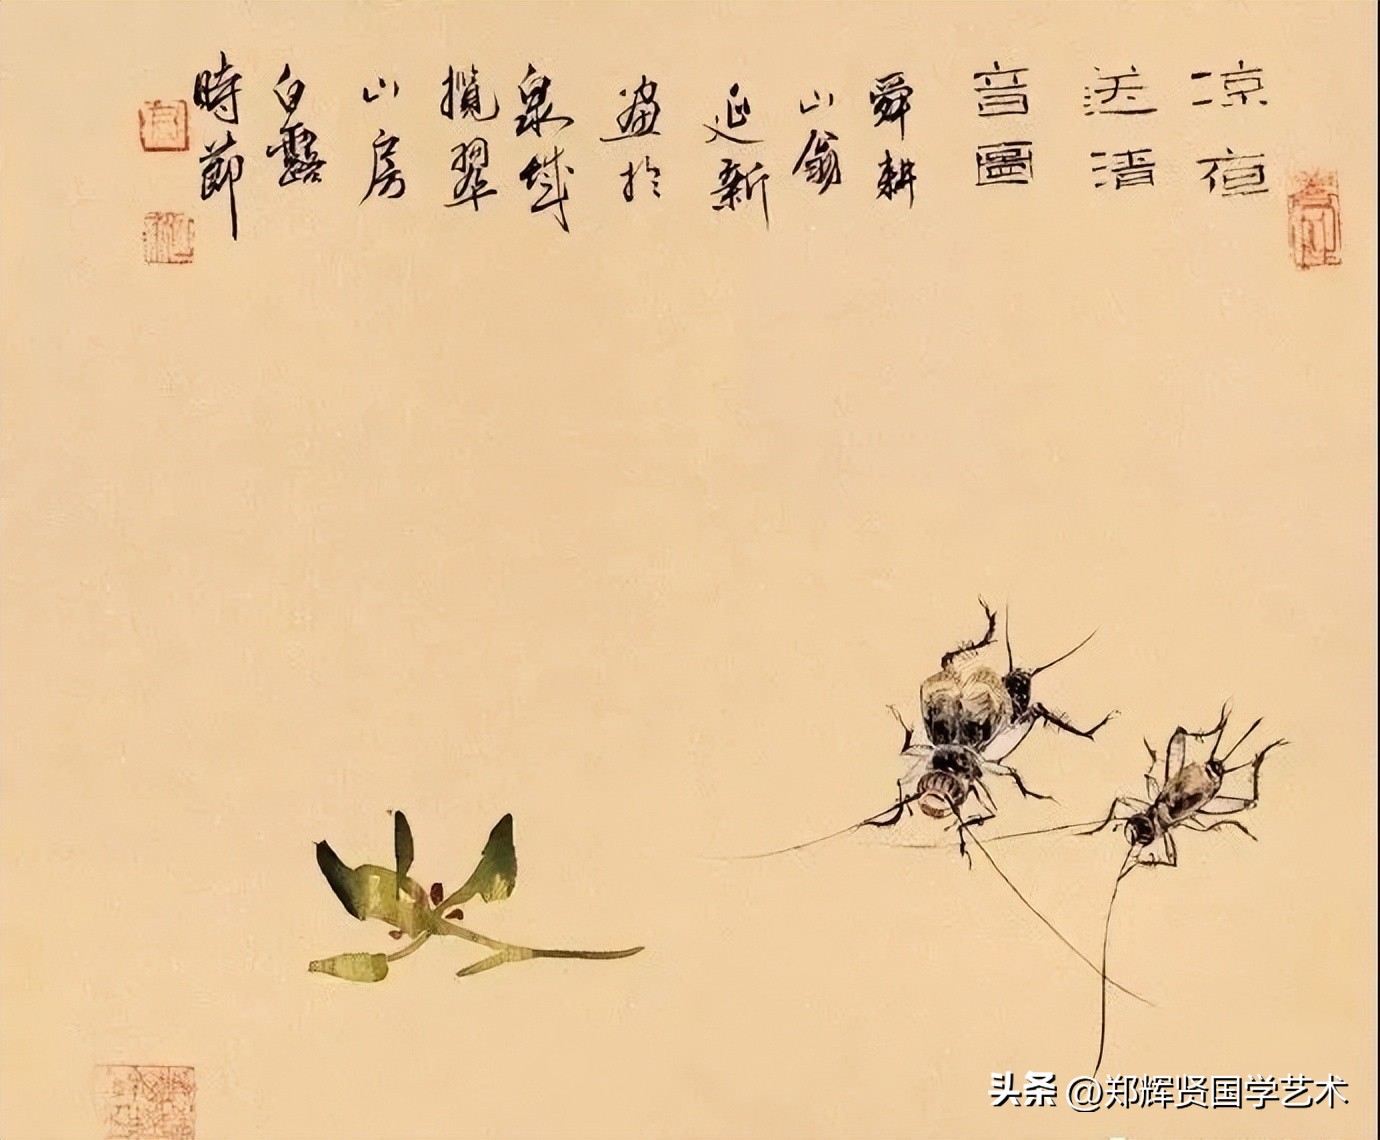 凉夜
送清
音圖
舜耕
山翁
延新
畫於
泉城
攬翠
山房
白露
時節
头条 @郑辉贤国学艺术